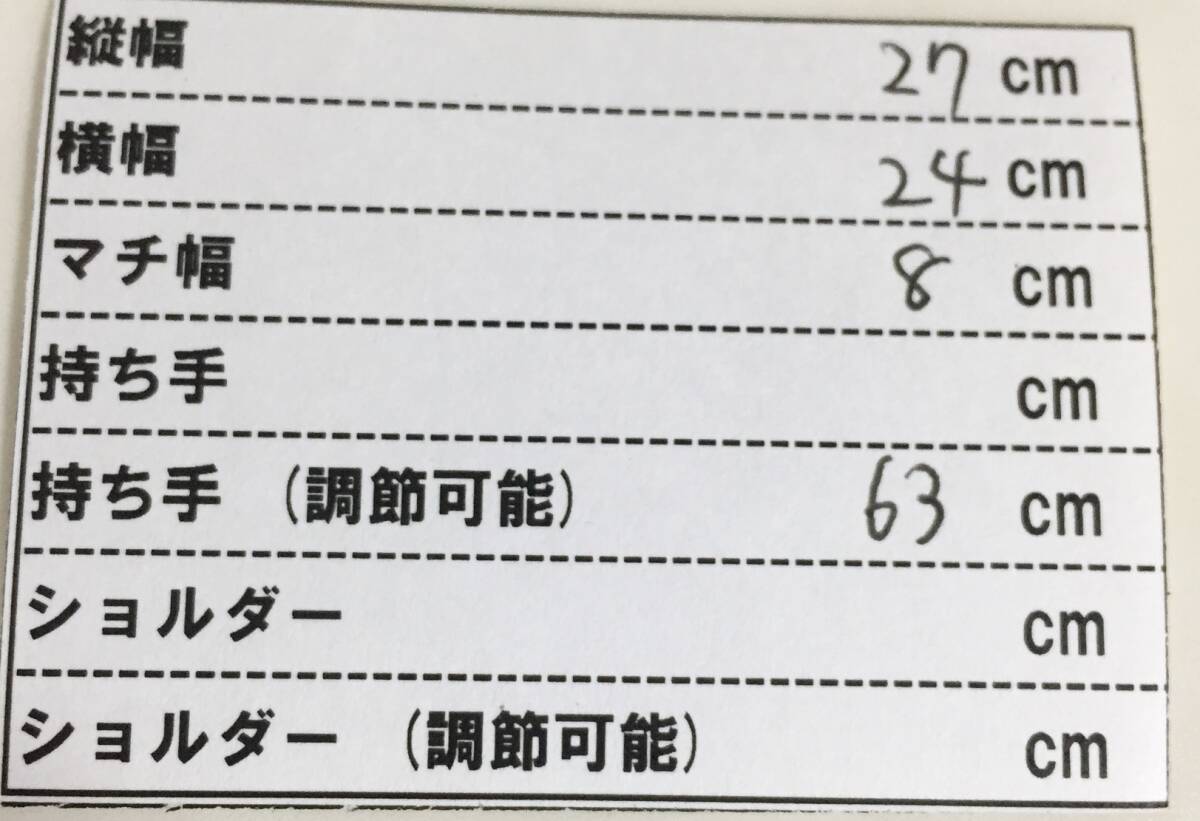 縦幅 27 cm
横幅 24 cm
マチ幅 8 cm
持ち手 cm
持ち手 (調節可能) 63 cm
ショルダー cm
ショルダー (調節可能) cm